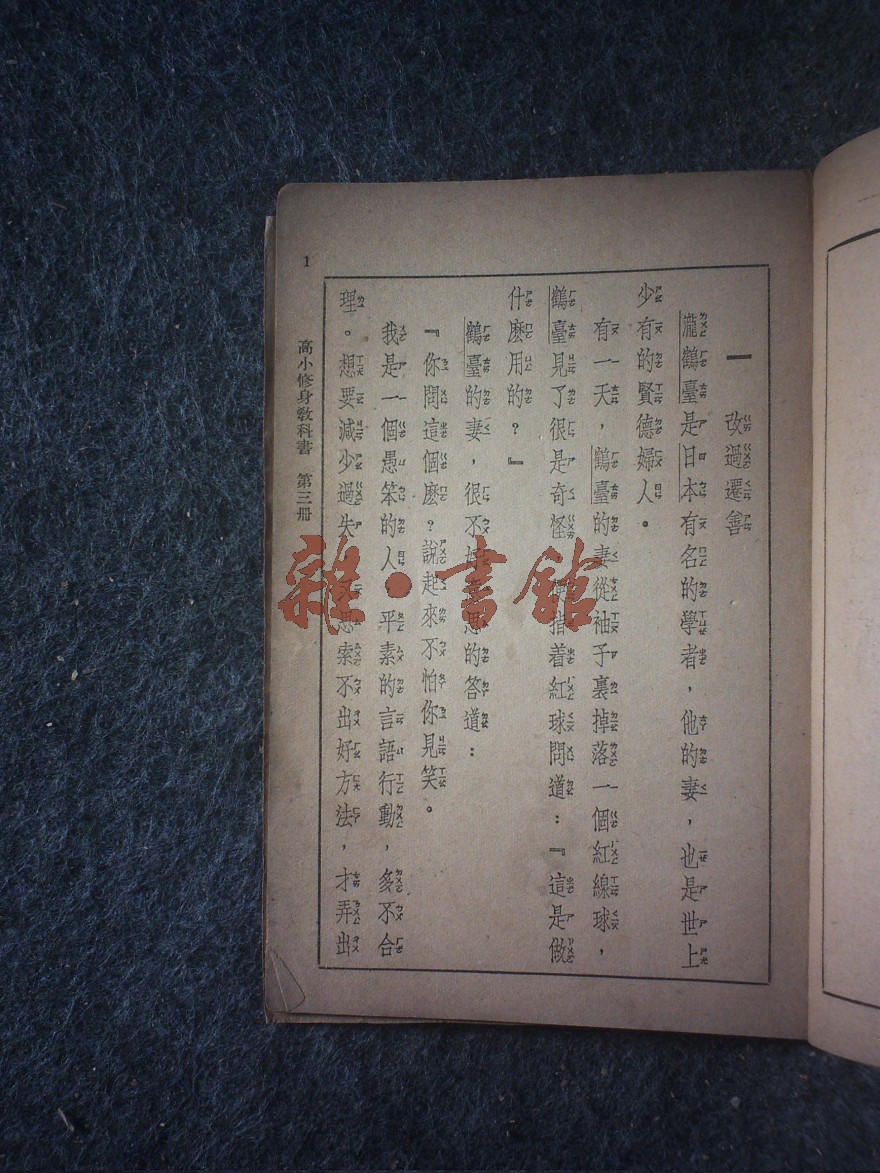 一 改過遷善
瀧鶴臺是日本有名的學者，他的妻，也是世上
少有的賢德婦人。
有一天，鶴臺的妻從袖子裏掉落一個紅線球，
鶴臺見了很是奇怪 便指着紅球問道：『這是做
什麽用的？』
鶴臺的妻，很不好意思的答道：
『你問這個麽？說起來不怕你見笑。
我是一個愚笨的人 平素的言語行動，多不合
理。想要減少過失 思索不出好方法，才弄出
高小修身教科書 第三册
1
雜·書館